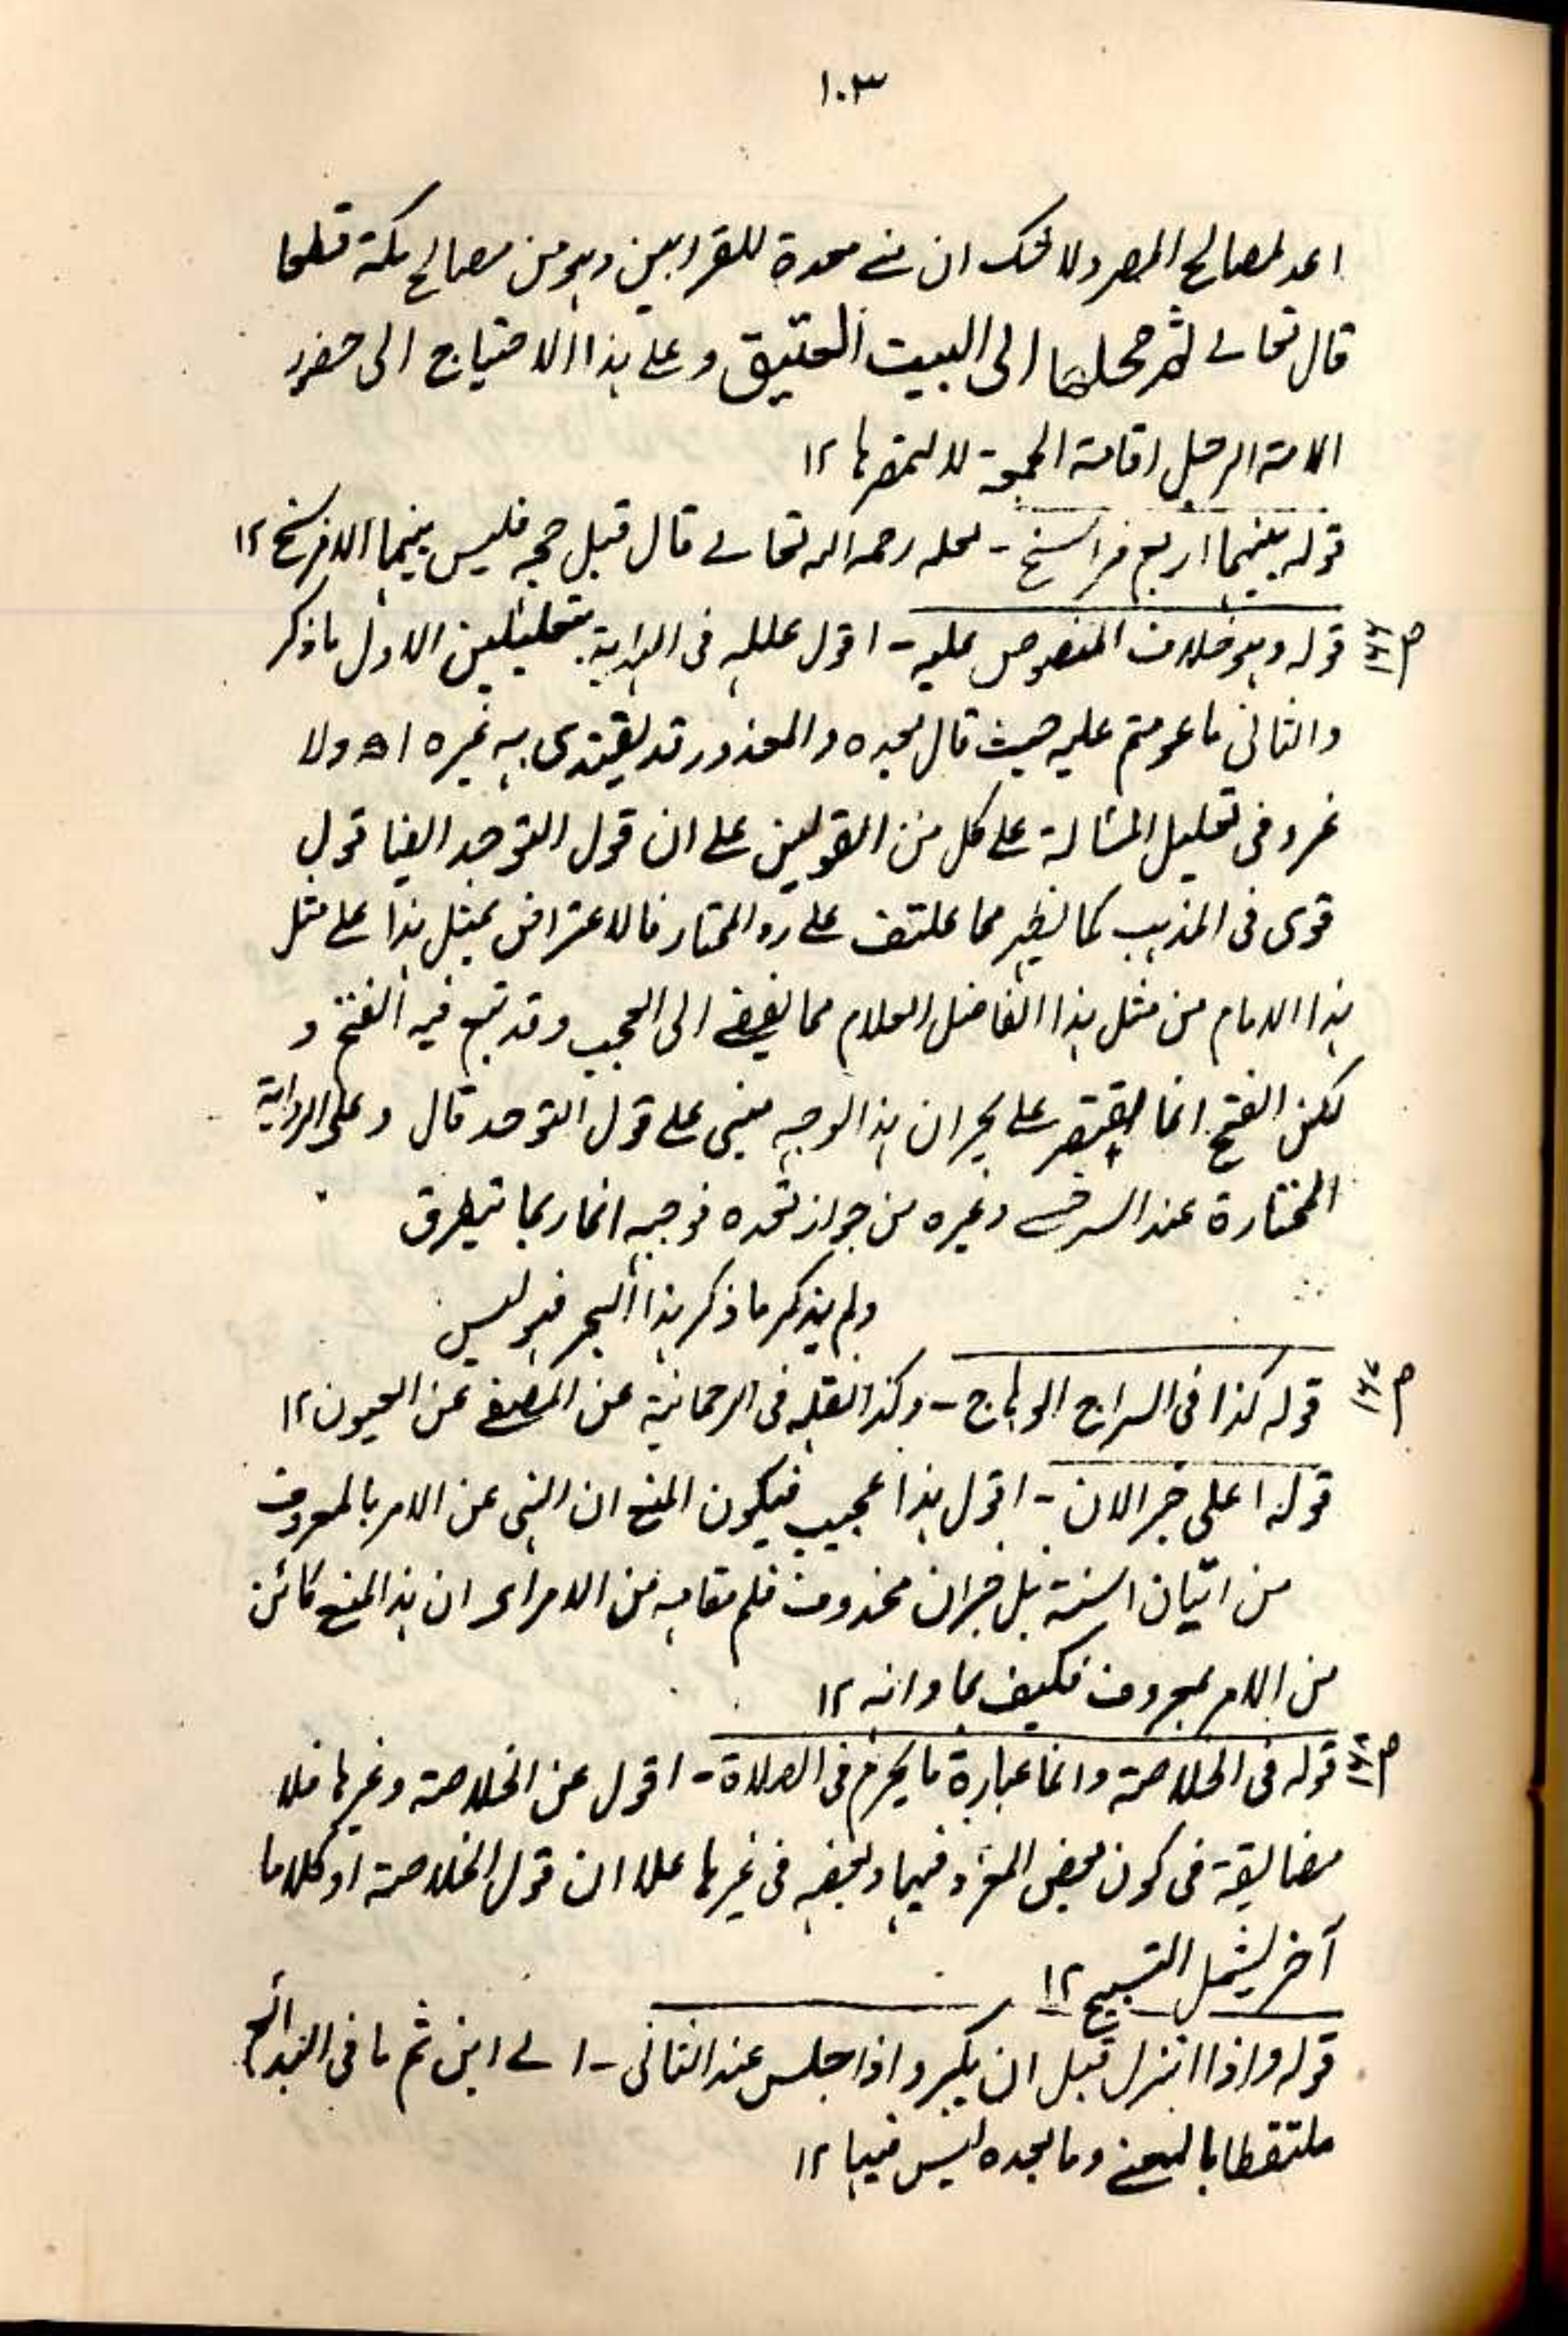 ١٠٣
اعد لمصالح المصر ولا شك ان منے معدة للقرابين وهو من مصالح مكة قطعا
قال تعالے ثم محلها الى البيت العتيق و علے هذا الاحتياج الى حضور
اقامة الجمعة لا لتمصرها ١٢
قوله بينهما اربع فراسخ - لعله رحمه الله تعالے قال قبل حجه فليس بينهما الا فرسخ ١٢
ص ١٤٤
قوله وهو خلاف المنصوص عليه - اقول علله فى الهداية بتعليلين الاول ما ذكر
والثانى ما عولتم عليه حيث قال بعده والمعذور قد يقتدى به غيره اھ ولا
غرو فى تعليل المسألة على كل من القولين علے ان قول التوحد ايضا قول
قوى فى المذهب كما يظهر مما علقت علے رد المحتار فالاعتراض بمثل هذا علے مثل
هذا الامام من مثل هذا الفاضل العلام مما يفضے الى العجب وقد تبع فيه الفتح و
لكن الفتح انما اقتصر علے ان هذا الوجه مبنى علے قول التوحد قال وعلى الرواية
المختارة عند السرخسے وغيره من جواز تعدده فوجهه انه ربما يتطرق
ولم يذكر ما ذكر هذا البحر فهو ليس
ص ١٤٧
قوله كذا فى السراج الوهاج - وكذا نقله فى الرحمانية عن المصفے عن العيون ١٢
قوله اعلى خبر لان - اقول هذا عجيب فيكون المنع ان النهى عن الامر بالمعروف
من اتيان السنة بل خبر ان محذوف قلم مقامه من الامر اى ان هذا المنع كائن
من الامر بمعروف فكيف بما دانه ١٢
ص ١٤٨
قوله فى الخلاصة وانما عبارة ما يحرم فى الصلاة - اقول عن الخلاصة وغيرها فلا
مضايقة فى كون بعض المعزو فيها وبعضه فى غيرها علا ان قول الخلاصة او كلاما
آخر يشمل التسبيح ١٢
قوله واذا نزل قبل ان يكبر واذا جلس عند الثانى - الے اين ثم ما فى البدائع
ملتقطا بالمعنے وما بعده ليس فيها ١٢